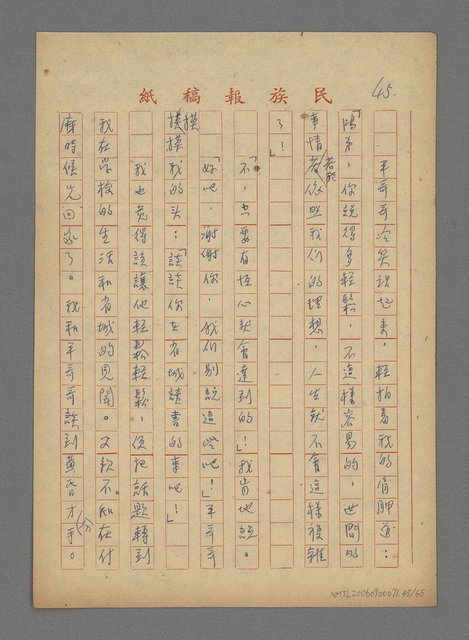 民族報稿紙
45.
平哥哥冷笑起來,輕拍着我的肩胛道:
「鴻弟,你說得多輕鬆,不這樣容易的,世間的
事情若能依照我们的理想,人生就不會這樣複雜
了!」
「不,只要有恒心就會達到的!」我肯地說。
「好吧,謝謝你,我们別說這些吧!」平哥哥
摸摸我的头:「談談你在省城讀書的事吧!」
我也覺得該讓他輕鬆輕鬆,便把話題轉到
我在学校的生活和省城的見聞。父親不知在什
麼時候先回家了。我和平哥哥談到黃昏才分手。
NMTL20060900071.45/65